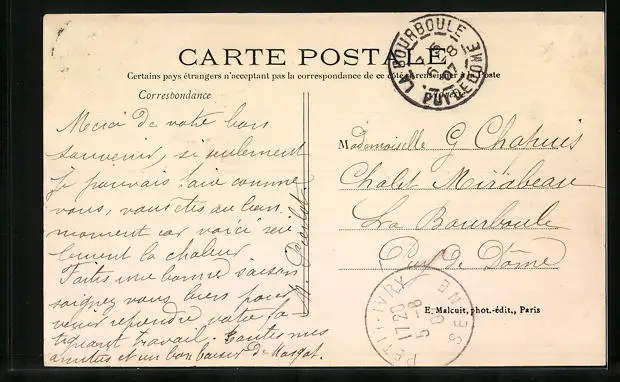 CARTE POSTALE
Certains pays étrangers n'acceptent pas la correspondance de ce côté. Se renseigner à la Poste
Correspondance
Merci de votre bon
souvenir, si seulement
je pouvais faire comme
vous, vous êtes au bon
moment car voici seu
lement la chaleur
Faites une bonne saison
soignez vous bien pour
venir reprendre votre fa
tiguant travail. Toutes mes
amitiés et un bon baiser de Margot.
Mademoiselle G Chapuis
Chalet Mirabeau
La Bourboule
Puy de Dôme
E. Malcuit, phot.-édit., Paris
LA BOURBOULE
6-8
07
PUY-DE-DOME
PETIT-IVRY
17 20
5-8
07
SEINE